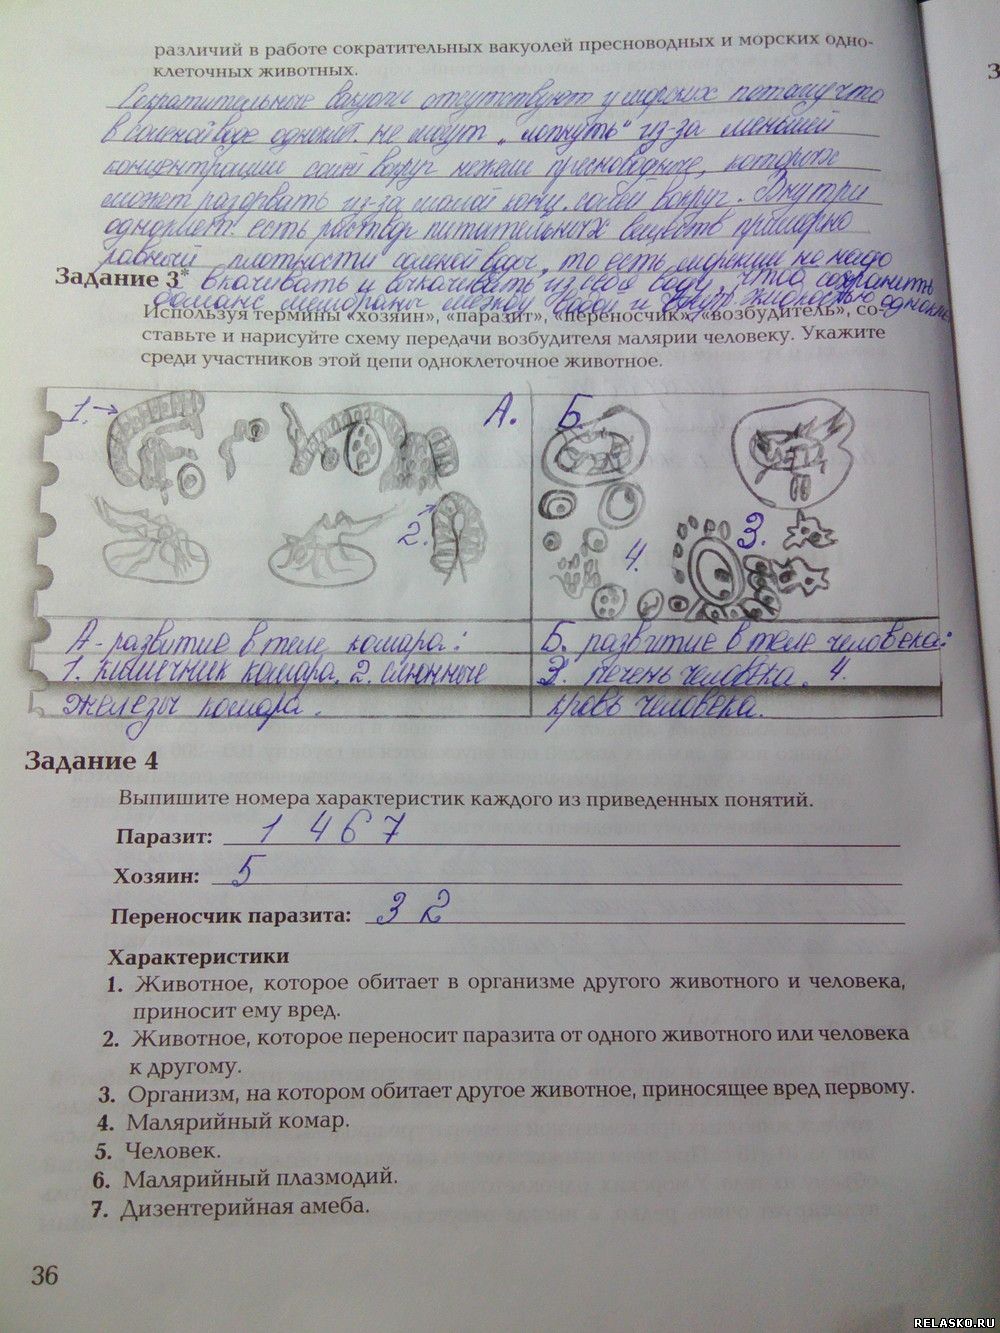 различий в работе сократительных вакуолей пресноводных и морских одно-
клеточных животных.
Сократительные вакуоли отсутствуют у морских потому что
в соленой воде однокл. не могут "лопнуть" из-за меньшей
концентрации солей вокруг нежели пресноводные, которых
может разорвать из-за малой конц. солей вокруг. Внутри
однокл. есть раствор питательных веществ примерно
равный плотности соленой воды, то есть морским не надо
Задание 3* вкачивать и выкачивать из себя воду, чтоб сохранить
баланс мембраны между водой и жидкостью
Используя термины «хозяин», «паразит», «переносчик», «возбудитель», со-
ставьте и нарисуйте схему передачи возбудителя малярии человеку. Укажите
среди участников этой цепи одноклеточное животное.
1. А. Б.
2. 4. 3.
А - развитие в теле комара: Б. развитие в теле человека:
1. кишечник комара. 2. слюнные 3. печень человека. 4.
железы комара. кровь человека.
Задание 4
Выпишите номера характеристик каждого из приведенных понятий.
Паразит: 1 4 6 7
Хозяин: 5
Переносчик паразита: 3 2
Характеристики
1. Животное, которое обитает в организме другого животного и человека,
приносит ему вред.
2. Животное, которое переносит паразита от одного животного или человека
к другому.
3. Организм, на котором обитает другое животное, приносящее вред первому.
4. Малярийный комар.
5. Человек.
6. Малярийный плазмодий.
7. Дизентерийная амеба.
36
З
RELASKO.RU